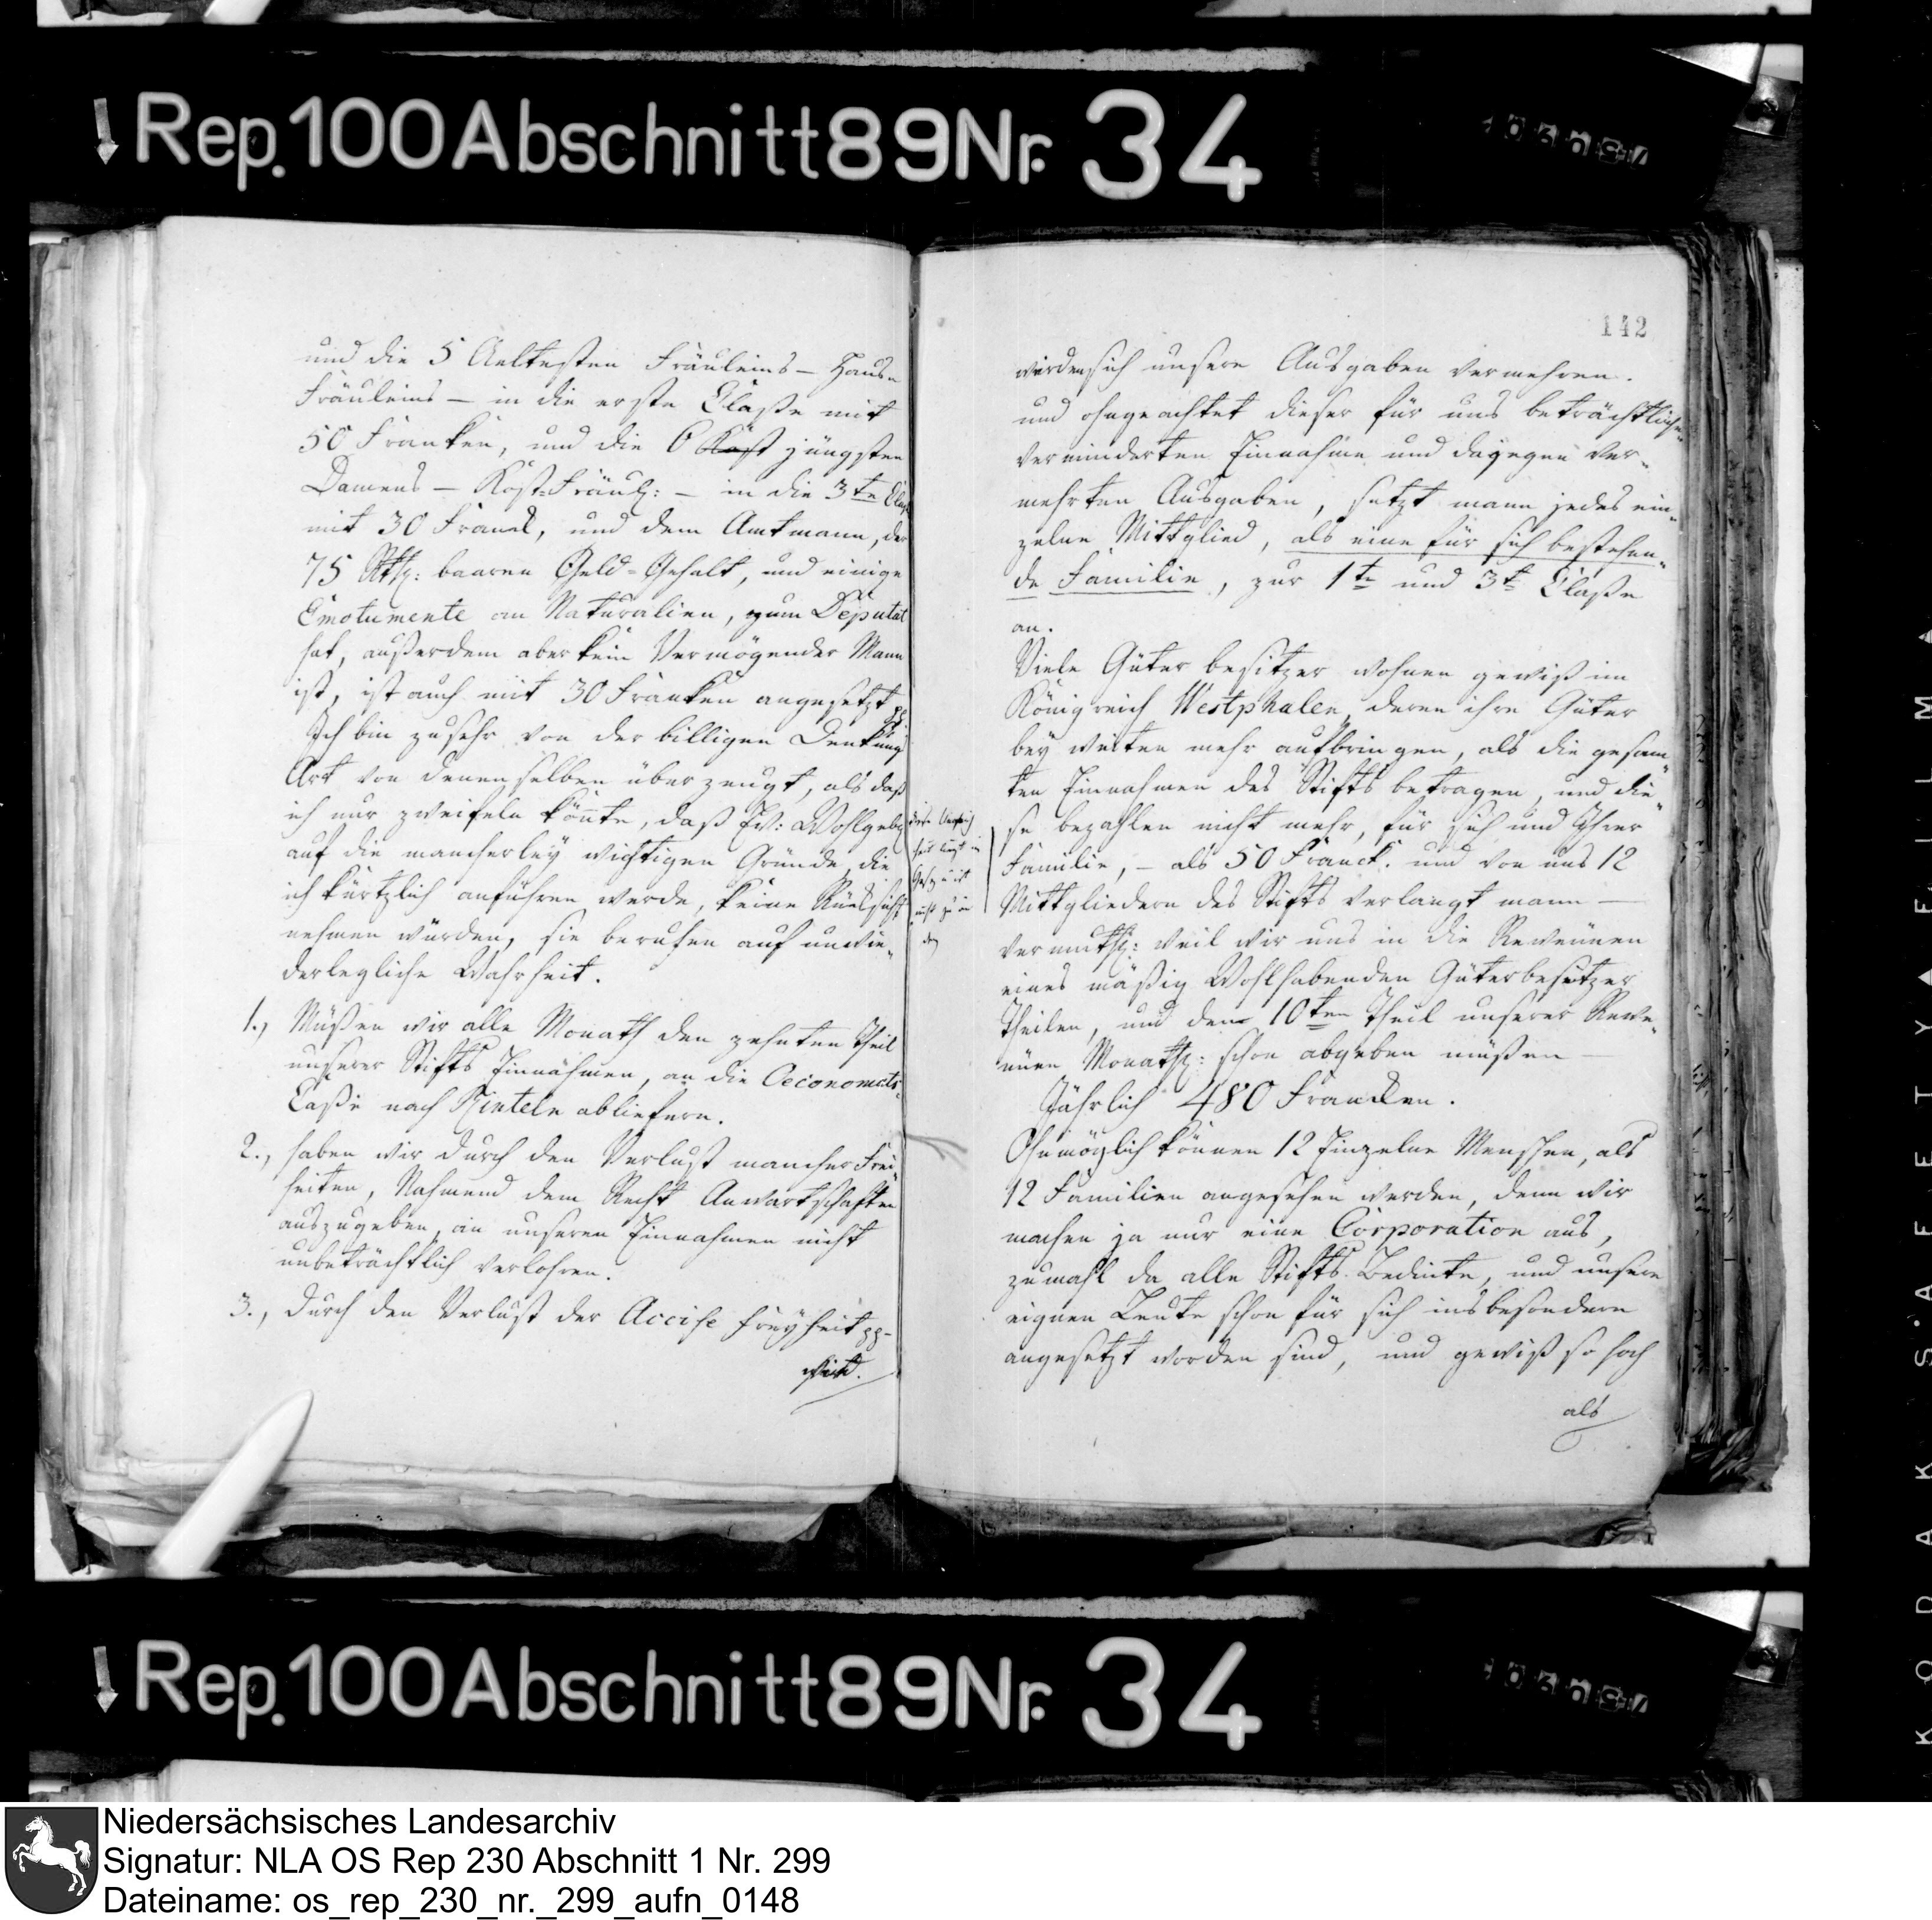 Rep. 100 Abschnitt 89 Nr. 34
und die 5 Aeltesten Fräuleins – Haus-
Fräuleins – in die erste Claße mit
50 Franken, und die 6 Kost jüngsten
Damens – Kost-Fräul: – in die 3te Claße
mit 30 Franck, und dem Amtmann, der
75 Rthl: baaren Geld-Gehalt, und einige
Emolumente an Naturalien, zum Deputat
hat, außerdem aber kein Vermögender Mann
ist, ist auch mit 30 Franken angesetzt pp
Ich bin zu sehr von der billigen Denkung
Art von denenselben überzeugt, als daß
ich nur zweifeln könte, daß Ew: Wohlgeb
auf die mancherley wichtigen Gründe, die
ich kürtzlich anführen werde, keine Rücksicht
nehmen würden, sie beruhen auf unwie-
derlegliche Wahrheit.
1., Müßen wir alle Monath den zehnten Theil
unserer Stifts Einnahmen, an die Oeconomats-
Caße nach Rinteln abliefern.
2., haben wir durch den Verlust mancher Frei-
heiten, Nahmend dem Recht Anwartschaften
auszugeben, an unseren Einnahmen nicht
unbeträchtlich verlohren.
3., Durch den Verlust der Accise Freyheit pp-
wird.
142
würden sich unsere Ausgaben vermehren.
und ohngeachtet dieser für uns beträchtlichen
verminderten Einnahme und dagegen ver-
mehrten Ausgaben, setzt mann jedes ein-
zelne Mittglied, als eine für sich bestehen-
de Familie, zur 1te und 3te Claße
an.
Viele Güter besitzer wohnen gewiß im
Königreich Westphalen, deren ihre Güter
bey weiten mehr aufbringen, als die gesam-
ten Einnahmen des Stifts betragen, und die-
se bezahlen nicht mehr, für sich und Ihrer
Familie, – als 50 Franck. und von uns 12
Mittgliedern des Stifts verlangt mann –
vermuthl: weil wir uns in die Reweünen
eines mäßig Wohlhabenden Güterbesitzer
Theilen, und den 10ten Theil unserer Rewe-
nüen Monathl: schon abgeben müßen –
Jährlich 480 Francken.
Ohnmöglich können 12 Einzelne Menschen, als
12 Familien angesehen werden, denn wir
machen ja nur eine Corporation aus,
zumahl da alle Stifts Bediente, und unsere
eignen Leute schon für sich insbesondere
angesetzt worden sind, und gewiß so hoch
als
Rep. 100 Abschnitt 89 Nr. 34
KODAK SAFETY FILM
Niedersächsisches Landesarchiv
Signatur: NLA OS Rep 230 Abschnitt 1 Nr. 299
Dateiname: os_rep_230_nr._299_aufn_0148